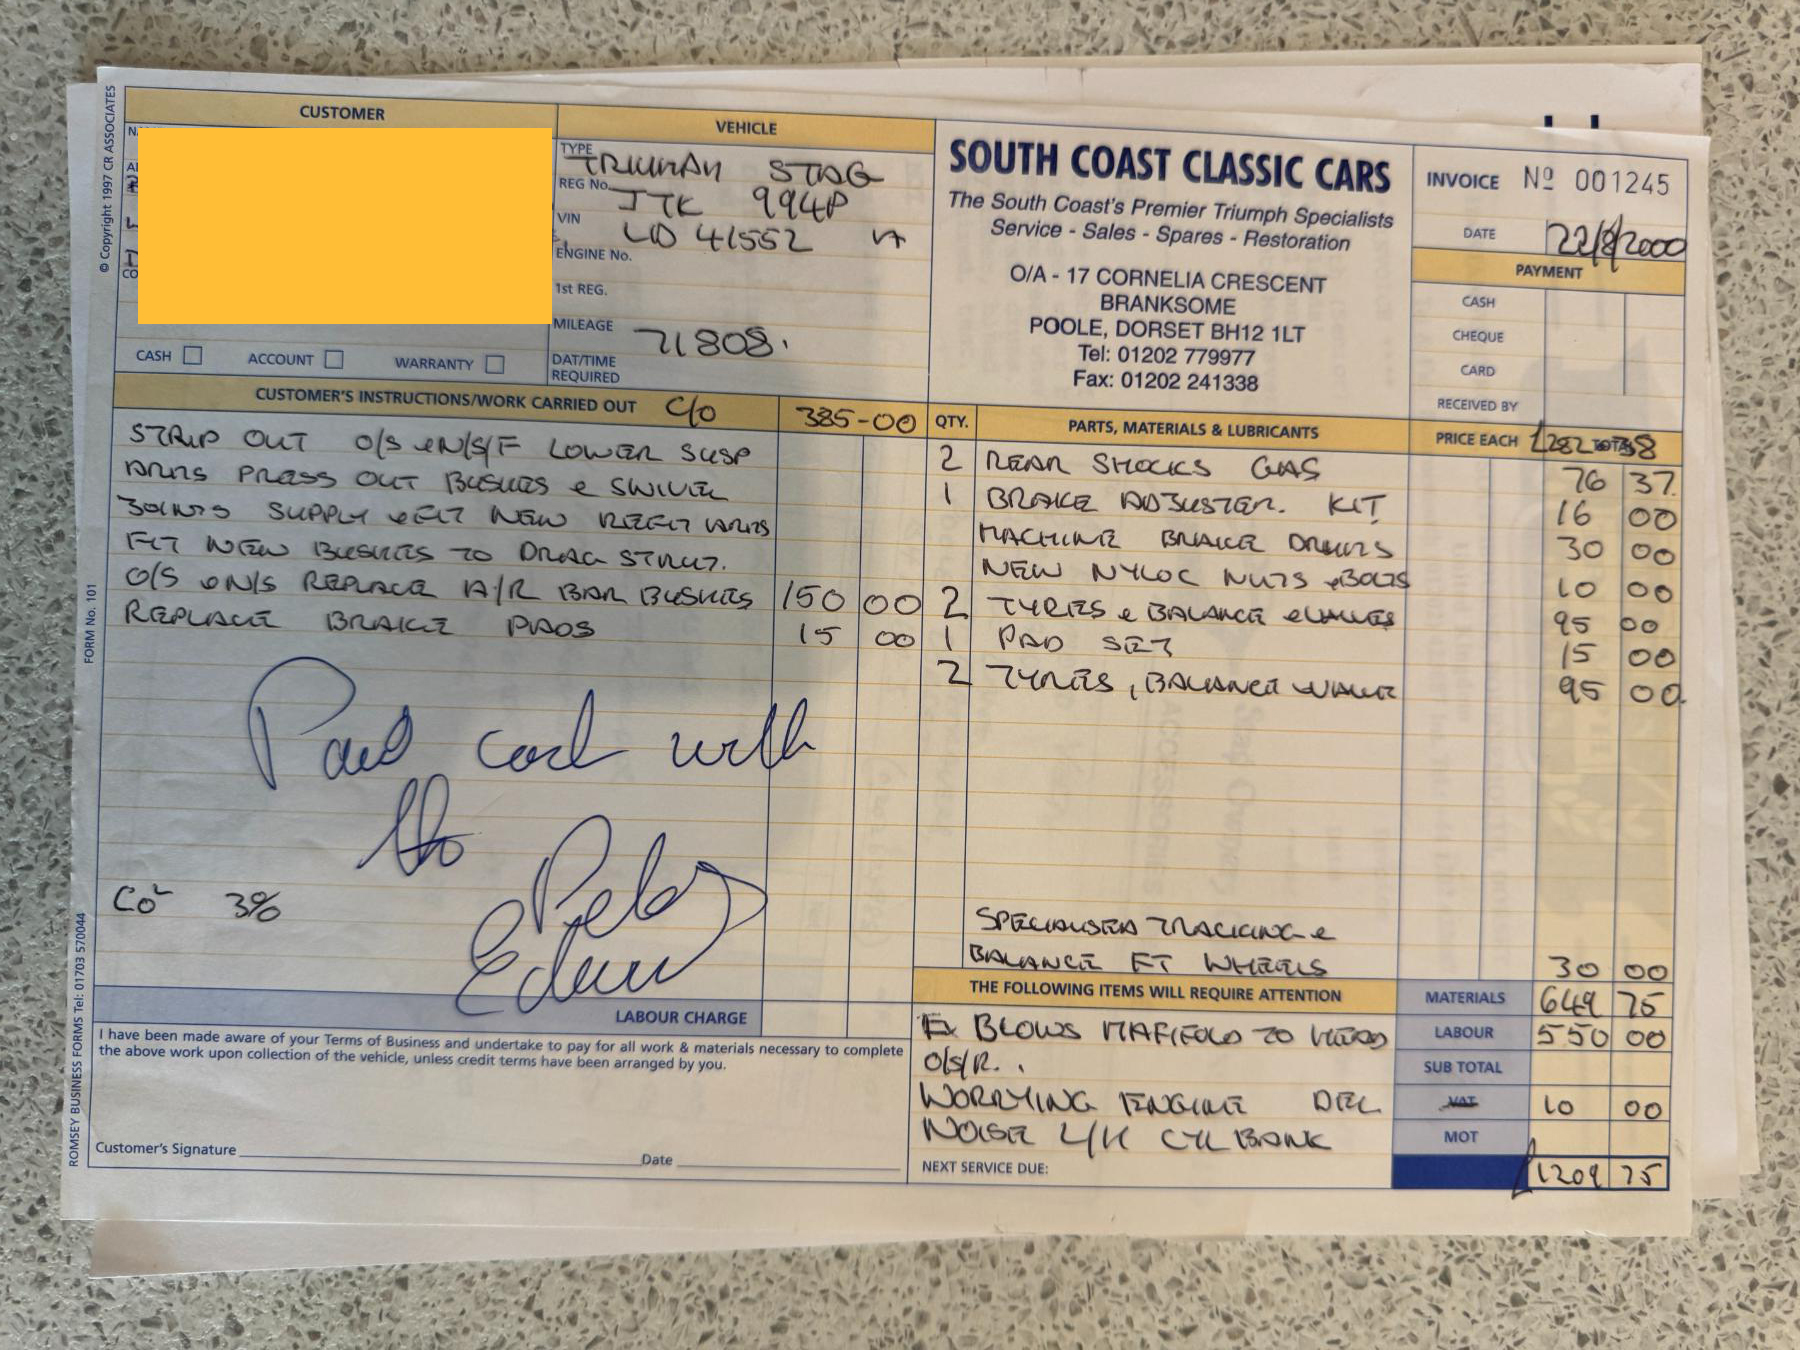 © Copyright 1997 CR ASSOCIATES
FORM No. 101
ROMSEY BUSINESS FORMS Tel: 01703 570044
CUSTOMER
CASH
ACCOUNT
WARRANTY
VEHICLE
TYPE TRIUMPH STAG
REG No. JTK 994P
VIN LD 41552
ENGINE No.
1st REG.
MILEAGE 71808.
DAT/TIME
REQUIRED
SOUTH COAST CLASSIC CARS
The South Coast's Premier Triumph Specialists
Service - Sales - Spares - Restoration
O/A - 17 CORNELIA CRESCENT
BRANKSOME
POOLE, DORSET BH12 1LT
Tel: 01202 779977
Fax: 01202 241338
INVOICE Nº 001245
DATE 22/8/2000
PAYMENT
CASH
CHEQUE
CARD
RECEIVED BY
CUSTOMER'S INSTRUCTIONS/WORK CARRIED OUT C/O 385-00
STRIP OUT O/S & N/S/F LOWER SUSP
ARMS PRESS OUT BUSHES & SWIVEL
JOINTS SUPPLY & FIT NEW REFIT ARMS
FIT NEW BUSHES TO DRAG STRUT.
O/S & N/S REPLACE A/R BAR BUSHES 150 00
REPLACE BRAKE PADS 15 00
Paid cash with
tho
CO² 3%
LABOUR CHARGE
I have been made aware of your Terms of Business and undertake to pay for all work & materials necessary to complete
the above work upon collection of the vehicle, unless credit terms have been arranged by you.
Customer's Signature
Date
QTY. PARTS, MATERIALS & LUBRICANTS PRICE EACH £282 TOTAL 38
2 REAR SHOCKS GAS 76 37
1 BRAKE ADJUSTER. KIT 16 00
MACHINE BRAKE DRUMS 30 00
NEW NYLOC NUTS & BOLTS 10 00
2 TYRES & BALANCE & VALVES 95 00
1 PAD SET 15 00
2 TYRES, BALANCE VALVE 95 00
SPECIALISED TRACKING &
BALANCE FT WHEELS 30 00
THE FOLLOWING ITEMS WILL REQUIRE ATTENTION
EX BLOWS MAFIFOLD TO HEAD
O/S/R.
WORRYING ENGINE
NOISE L/H CYL BANK
NEXT SERVICE DUE:
MATERIALS 649 75
LABOUR 550 00
SUB TOTAL
VAT 10 00
MOT
£1209 75